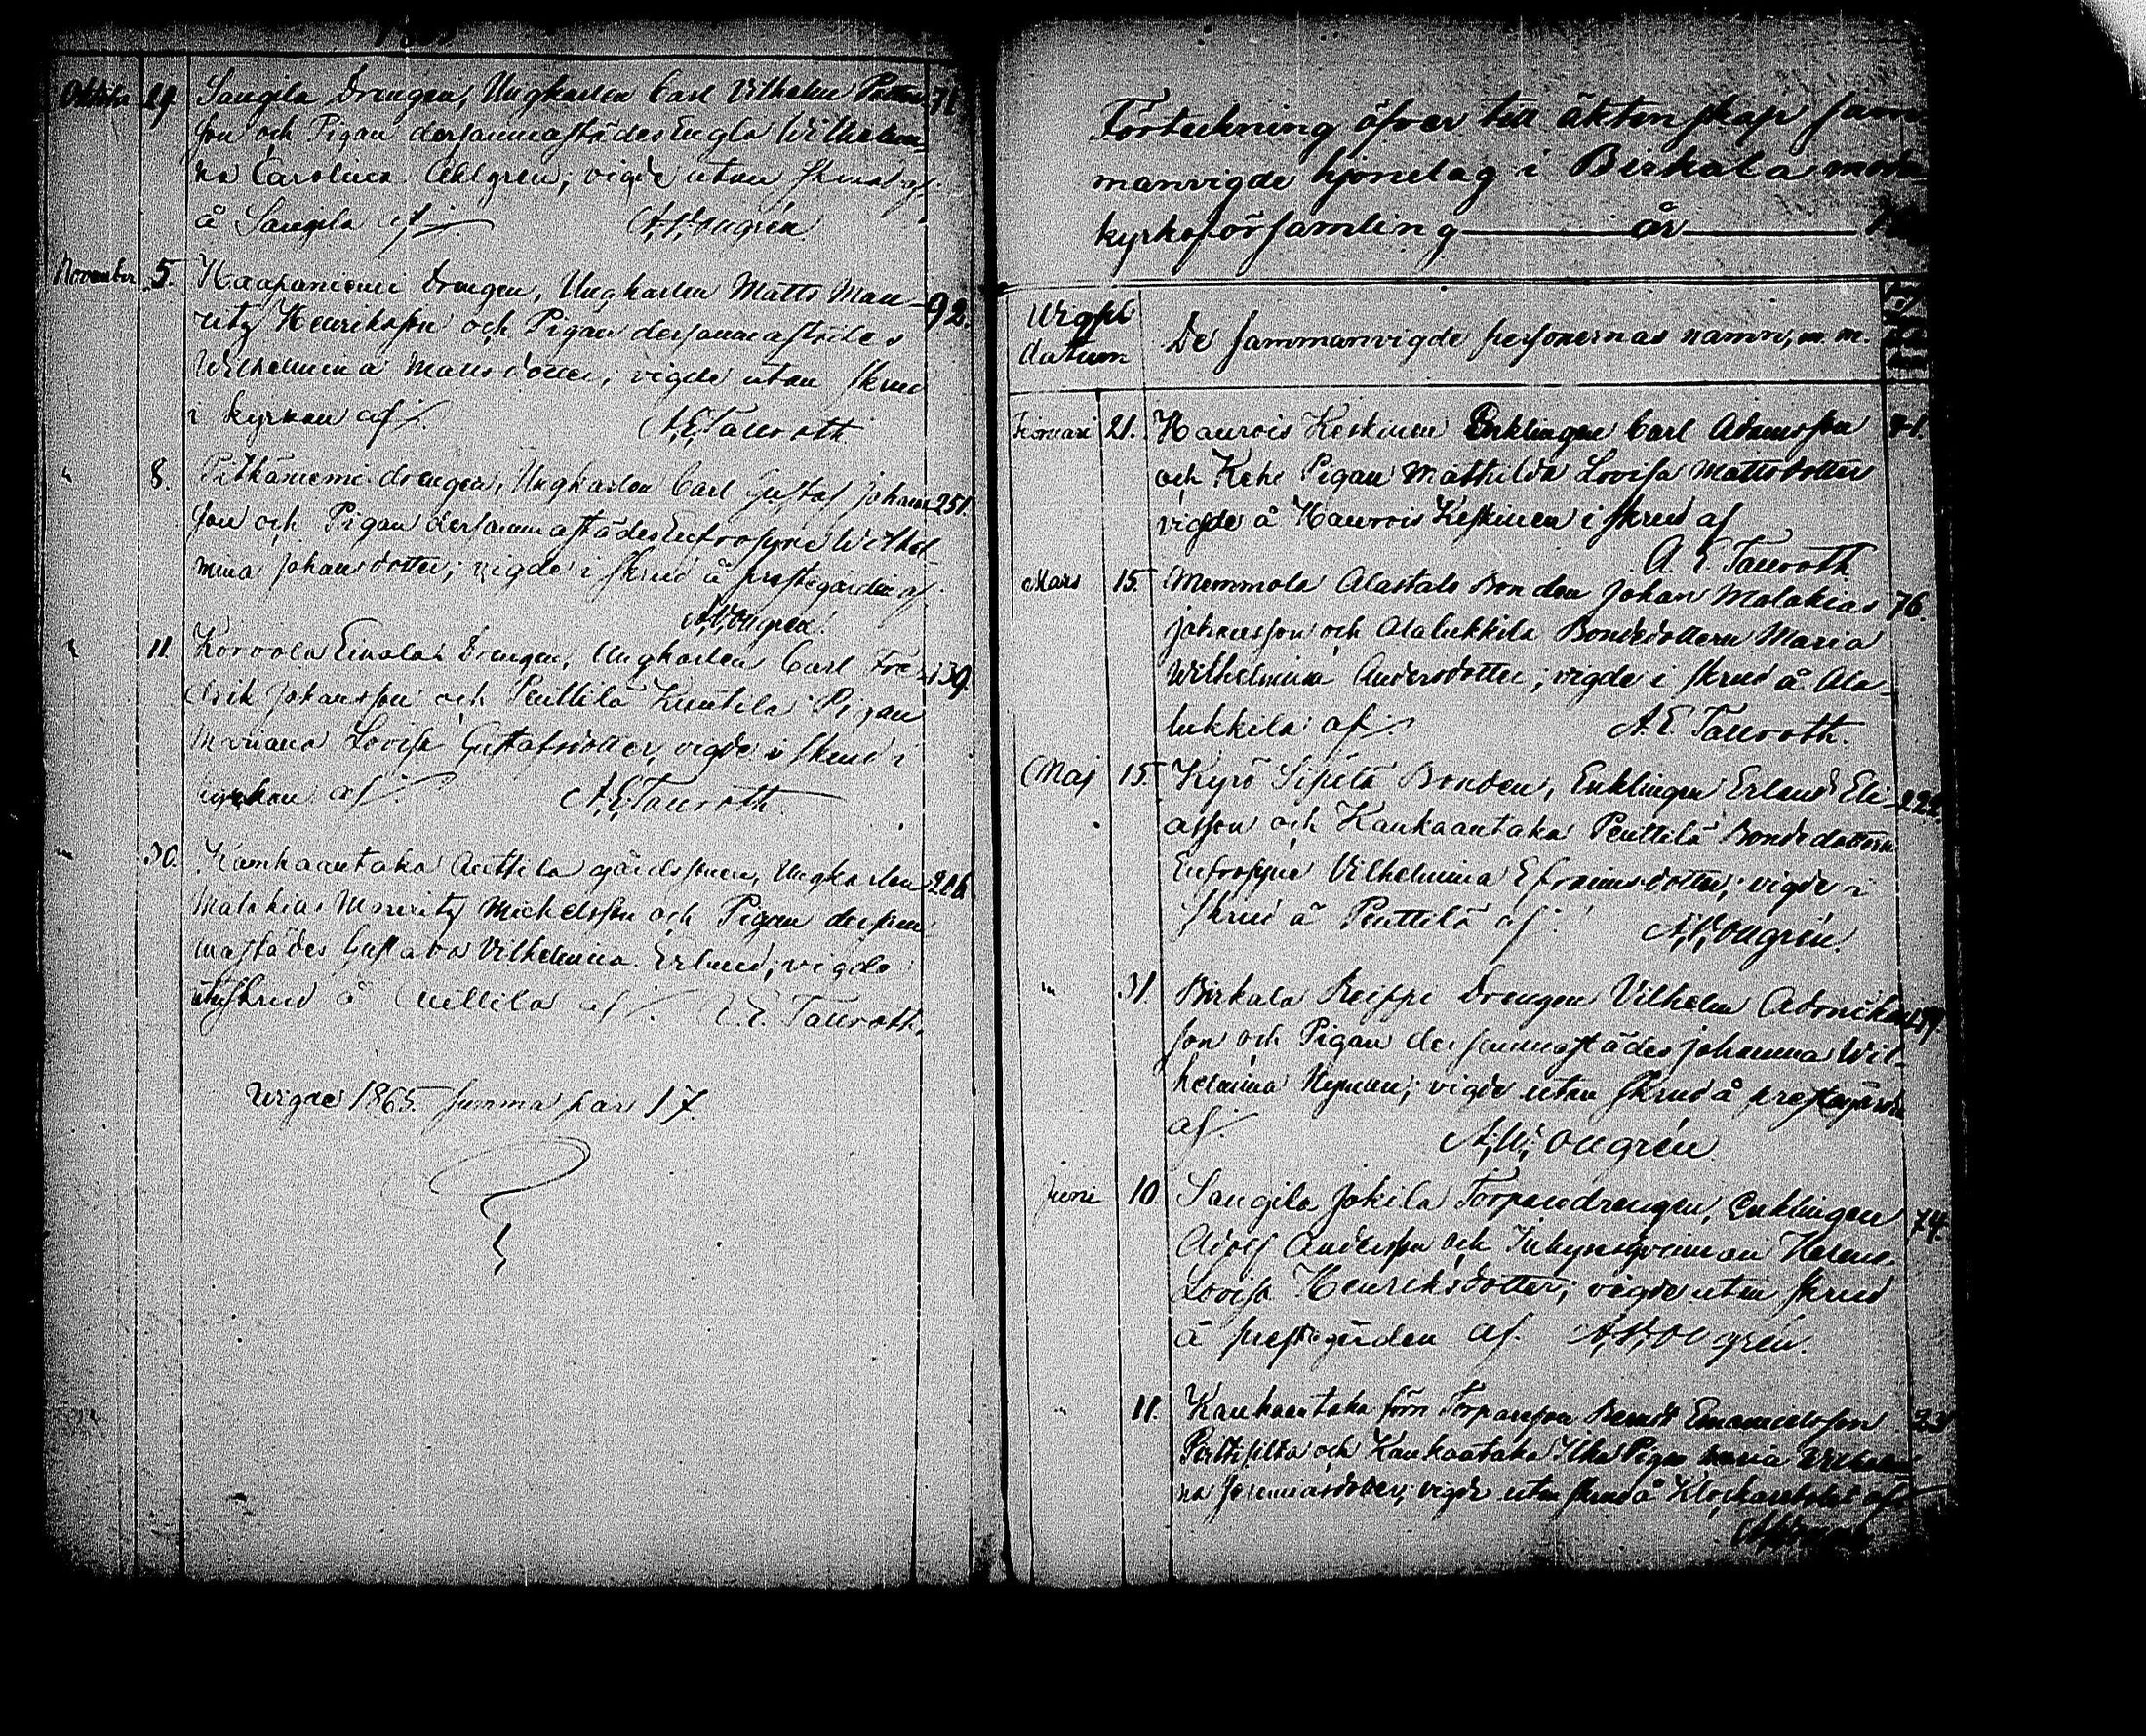 29. Saugila Drengen, Ungkarlen Carl Vilhelm 71
son och Pigan dersammastädes Engla Wilhelmi-
na Carolina Ahlgren; vigde utan skrud
å Saugila af
November 5. Haapaniemi Drengen, Ungkarlen Matts Mau- 92.
ritz Henriksson och Pigan dersammastädes
Wilhelmina Mattsdotter; vigde utan skrud
i kyrkan af A. E. Tauroth
" 8. Pitkäniemi drengen, Ungkarlen Carl Gustaf Johans 251.
son och Pigan dersammastädes Eufrosyne Wilhel-
mina Johansdotter; vigde i skrud å prestegården af
" 11. Korvola Einola Drengen, Ungkarlen Carl Fre- 139.
drik Johansson och Penttilä Knuutila Pigan
Mariana Lovisa Gustafsdotter, vigde i skrud i
kyrkan af A. E. Tauroth
" 30. Kankaantaka Anttila gårdssonen, Ungkarlen
Malakias Mauritz Michelsson och Pigan dersam
mastädes Gustava Vilhelmina Erlund; vigde
utan skrud å Anttila af A. E. Tauroth
Vigde 1865. Summa par 17.
Förteckning öfver till äktenskap sam
manvigde hjonelag i Birkala moder
kyrkoförsamling år
Vigsel
datum De sammanvigde personernas namn, m.m.
21. Haurois Keskinen Enklingen Carl Adamsson
och Kehe Pigan Mathilda Lovisa Mattsdotter
vigde å Haurois Keskinen i skrud af
A. E. Tauroth
Mars 15. Memmola Alastalo Bonden Johan Malakias 76.
Johansson och Alalukkila Bondedottern Maria
Wilhelmina Andersdotter; vigde i skrud å Ala-
lukkila af A. E. Tauroth.
Maj 15. Kyrö Sipilä Bonden, Enklingen Erland Eli- 222
asson och Kankaantaka Penttilä Bondedottern
Eufrosyne Vilhelmina Efraimsdotter; vigde i
skrud å Penttilä af
" 31 Birkala Reippi Drengen Vilhelm
son och Pigan dersammastädes Johanna Wil-
helmina Nyman; vigde utan skrud å prestegården
af
Juni 10 Saugila Jokila Torparedrengen, Enklingen 74.
Adolf Andersson och Inhysesqvinnan Helena
Lovisa Henriksdotter; vigde utan skrud
å prestegården af
" 11. Kankaantaka förre Torparesson Berndt Emanuelsson
och Kankaantaka Pigan Maria Vilhelmi
na Jeremiasdotter; vigde utan skrud å Klockarebolet af